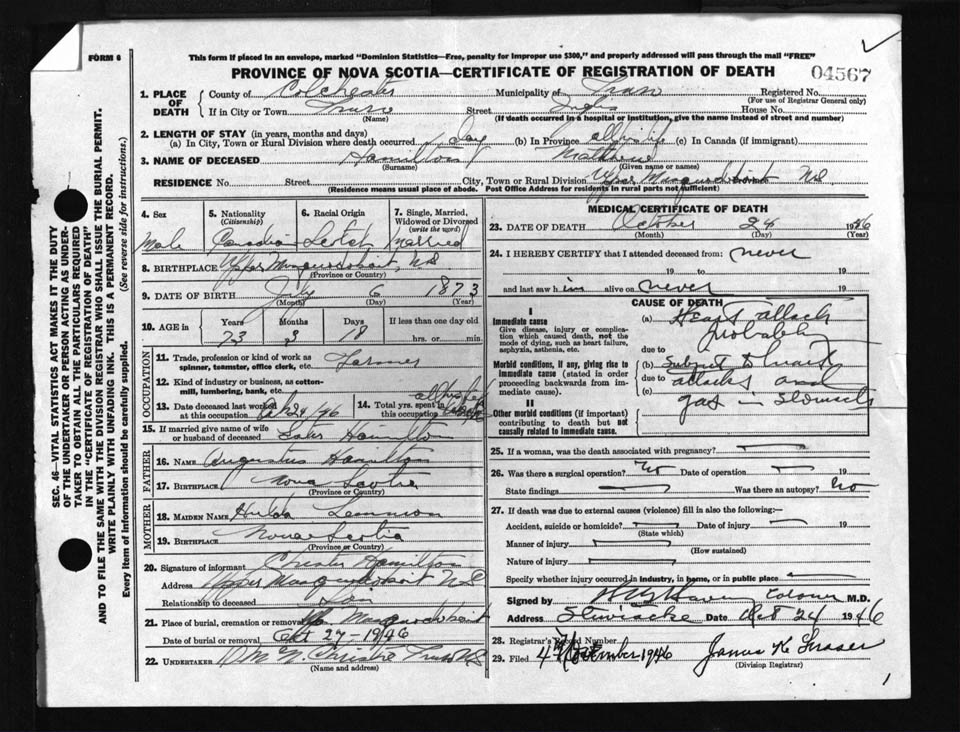 FORM 6
This form if placed in an envelope, marked "Dominion Statistics—Free, penalty for improper use $300," and properly addressed will pass through the mail "FREE"
PROVINCE OF NOVA SCOTIA—CERTIFICATE OF REGISTRATION OF DEATH
04567
SEC. 46—VITAL STATISTICS ACT MAKES IT THE DUTY
OF THE UNDERTAKER OR PERSON ACTING AS UNDER-
TAKER TO OBTAIN ALL THE PARTICULARS REQUIRED
IN THE "CERTIFICATE OF REGISTRATION OF DEATH"
AND TO FILE THE SAME WITH THE DIVISION REGISTRAR WHO SHALL ISSUE THE BURIAL PERMIT.
WRITE PLAINLY WITH UNFADING INK. THIS IS A PERMANENT RECORD.
Every item of information should be carefully supplied. (See reverse side for instructions.)
1. PLACE OF DEATH
County of Colchester Municipality of Truro Registered No.
(For use of Registrar General only)
If in City or Town Truro Street Inglis House No.
(Name) (If death occurred in a hospital or institution, give the name instead of street and number)
2. LENGTH OF STAY (in years, months and days)
(a) In City, Town or Rural Division where death occurred 1 Day (b) In Province all his life (c) In Canada (if immigrant)
3. NAME OF DECEASED Hamilton Mathew
(Surname) (Given name or names)
RESIDENCE No. Street City, Town or Rural Division Upper Musquodoboit NS
(Residence means usual place of abode. Post Office Address for residents in rural parts not sufficient)
4. Sex 5. Nationality (Citizenship) 6. Racial Origin 7. Single, Married, Widowed or Divorced (write the word)
Male Canadian Scotch Married
8. BIRTHPLACE Upper Musquodoboit, NS
(Province or Country)
9. DATE OF BIRTH July 6 1873
(Month) (Day) (Year)
10. AGE in Years Months Days If less than one day old
73 3 18 hrs. or min.
OCCUPATION
11. Trade, profession or kind of work as spinner, teamster, office clerk, etc. Farmer
12. Kind of industry or business, as cotton-mill, lumbering, bank, etc.
13. Date deceased last worked at this occupation Oct 24/46 14. Total yrs. spent in this occupation all his life
15. If married give name of wife or husband of deceased Hamilton
FATHER
16. NAME Augustus Hamilton
17. BIRTHPLACE Nova Scotia
(Province or Country)
MOTHER
18. MAIDEN NAME Hulda
19. BIRTHPLACE Nova Scotia
(Province or Country)
20. Signature of informant Chester Hamilton
Address Upper Musquodoboit NS
Relationship to deceased Son
21. Place of burial, cremation or removal Up. Musquodoboit
Date of burial or removal Oct 27-1946
22. UNDERTAKER Christie Truro NS
(Name and address)
MEDICAL CERTIFICATE OF DEATH
23. DATE OF DEATH October 24 1946
(Month) (Day) (Year)
24. I HEREBY CERTIFY that I attended deceased from: never
19 to 19
and last saw him alive on never 19
CAUSE OF DEATH
I
Immediate cause
Give disease, injury or complication which caused death, not the mode of dying, such as heart failure, asphyxia, asthenia, etc.
(a) Heart attack
probably
due to
Morbid conditions, if any, giving rise to immediate cause (stated in order proceeding backwards from immediate cause).
(b) Subject to heart
due to attacks and
(c) gas in stomach
II
Other morbid conditions (if important) contributing to death but not causally related to immediate cause.
25. If a woman, was the death associated with pregnancy?
26. Was there a surgical operation? No Date of operation 19
State findings Was there an autopsy? No
27. If death was due to external causes (violence) fill in also the following:—
Accident, suicide or homicide? Date of injury 19
(State which)
Manner of injury
(How sustained)
Nature of injury
Specify whether injury occurred in industry, in home, or in public place
Signed by Coroner M.D.
Address Stewiacke Date Oct 24 1946
28. Registrar's Record Number
29. Filed 4th November 1946 James K Fraser
(Division Registrar)
1